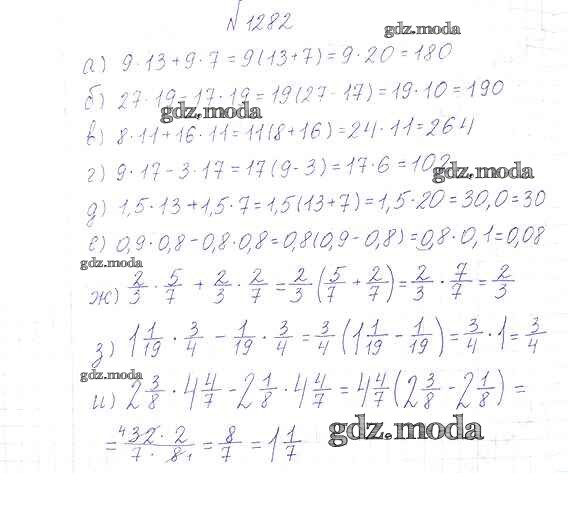 № 1282
gdz.moda
а) 9·13+9·7=9(13+7)=9·20=180
б) 27·19-17·19=19(27-17)=19·10=190
gdz.moda
в) 8·11+16·11=11(8+16)=24·11=264
г) 9·17-3·17=17(9-3)=17·6=102
gdz.moda
д) 1,5·13+1,5·7=1,5(13+7)=1,5·20=30,0=30
е) 0,9·0,8-0,8·0,8=0,8(0,9-0,8)=0,8·0,1=0,08
gdz.moda
ж) 2/3 · 5/7 + 2/3 · 2/7 = 2/3 (5/7 + 2/7) = 2/3 · 7/7 = 2/3
з) 1 1/19 · 3/4 - 1/19 · 3/4 = 3/4 (1 1/19 - 1/19) = 3/4 · 1 = 3/4
gdz.moda
и) 2 3/8 · 4 4/7 - 2 1/8 · 4 4/7 = 4 4/7 (2 3/8 - 2 1/8) =
= 4 32 · 2 / 7 · 8 1 = 8/7 = 1 1/7
gdz.moda